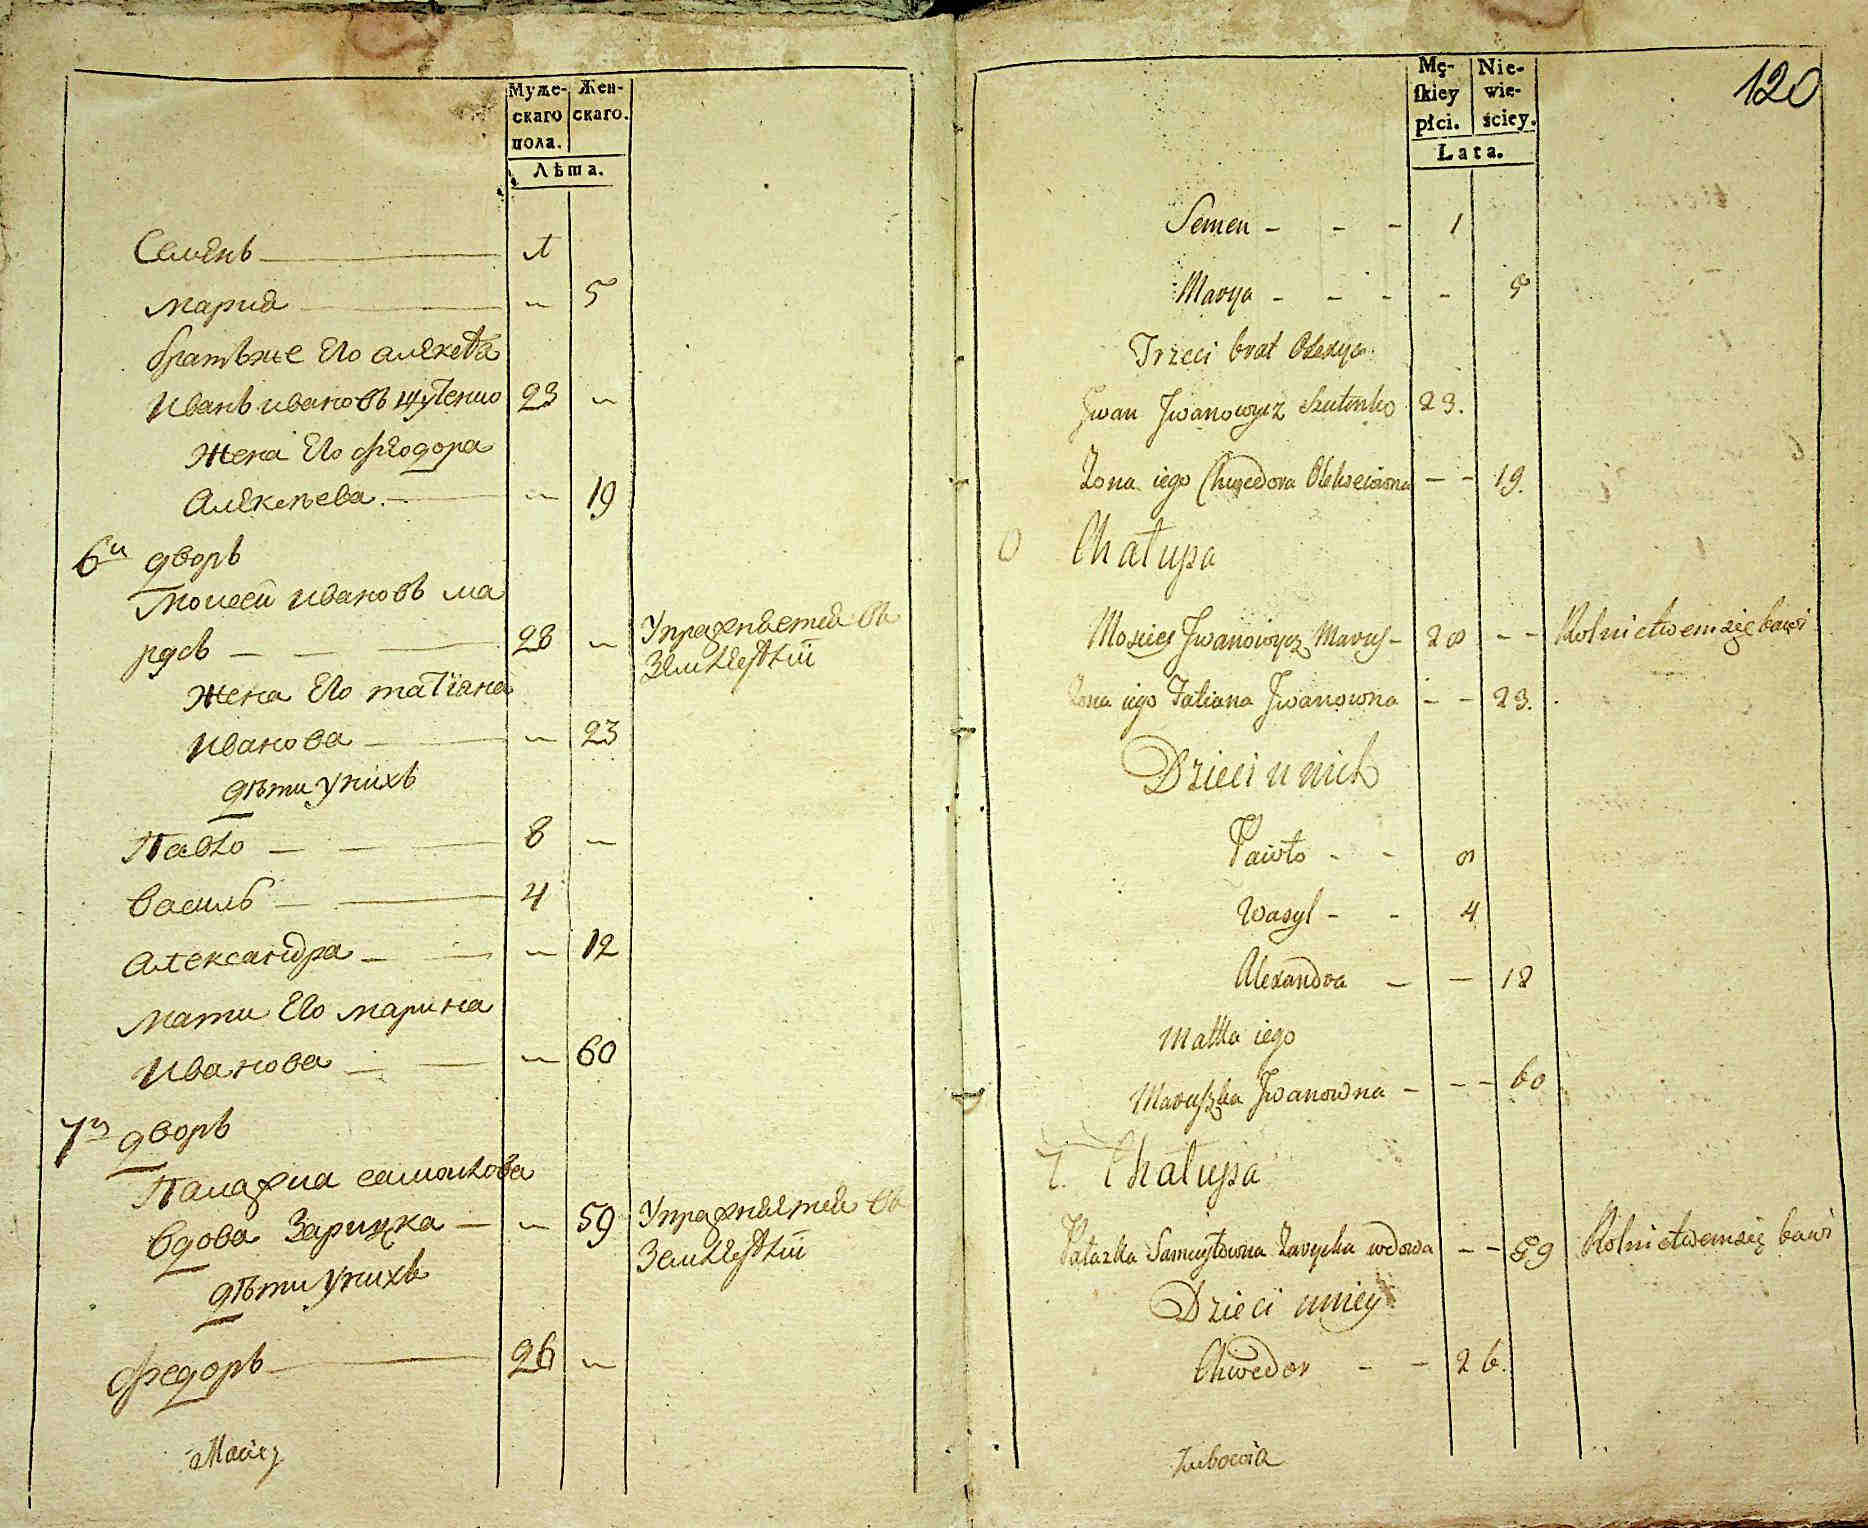 Муже-
скаго
пола.
Жен-
скаго.
Лѣта.
Семенъ 1
Мария 5
братъ же Его алексѣя
Иванъ ивановъ шутенко 23
Жена Его Феодора
Алексѣева 19
6й дворъ
Моисей ивановъ ма
русь 28 Упражняется въ
Земледѣлїи
Жена Его татїана
Иванова 23
дѣти унихъ
Павло 8
Василь 4
Александра 12
Мати Его марина
Иванова 60
7й дворъ
Палажка самойлова
вдова Зарицка 59 Упражняется въ
Земледѣлїи
дѣти унихъ
Федоръ 26
120
Mę-
ſkiey
płci.
Nie-
wie-
ściey.
Lata.
Semen - - - 1
Marya - - - - 5
Trzeci brat Olexya
Jwan Jwanowycz Szutenko 23.
Zona iego Chwedora Olekseiowna - - 19.
6 Chałupa
Mosiey Jwanowycz Marus - 28 - - Rolnictwem się bawi
Zona iego Tatiana Jwanowna - - 23.
Dzieci u nich
Pawło - - 8
Wasyl - - 4
Alexandra - - 12
Matka iego
Maruszka Jwanowna - - - 60
7. Chałupa
Pałazka Samuyłowna Zarycka wdowa - - 59 Rolnictwem się bawi
Dzieci u niey
Chwedor - - 26.